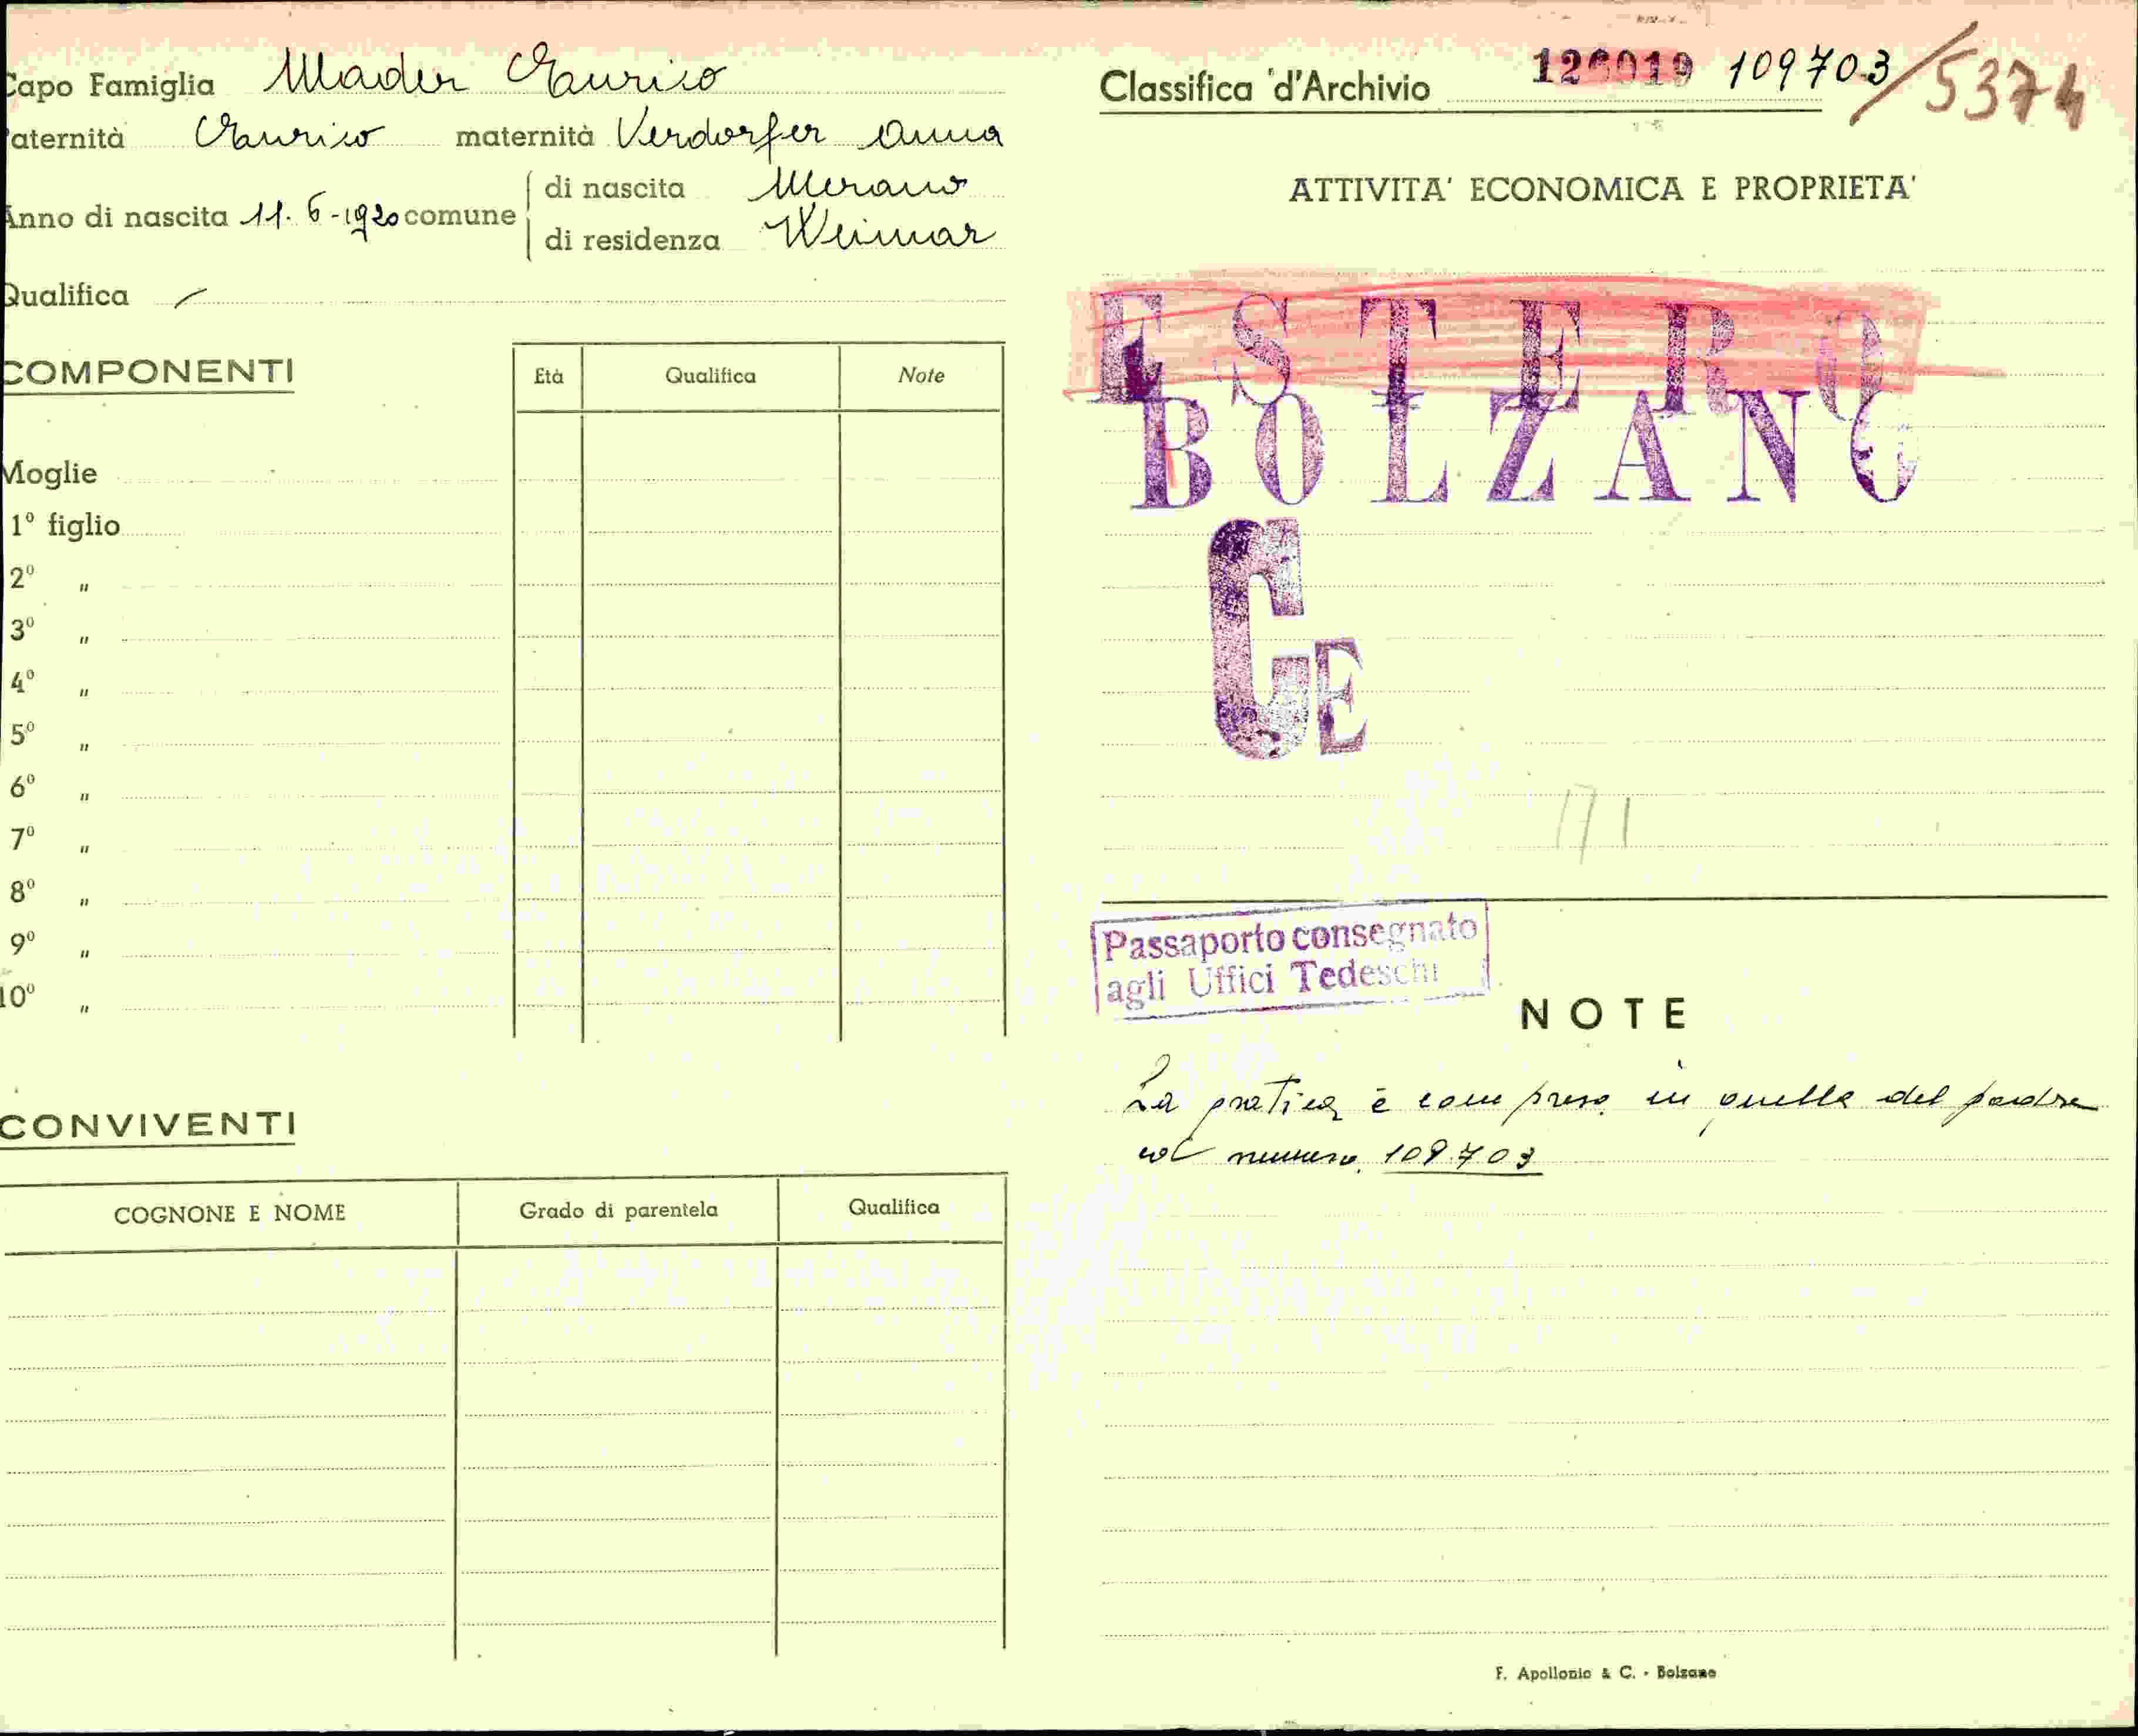 Capo Famiglia Mader Enrico
Paternità Enrico maternità Verdorfer Anna
Anno di nascita 11.6-1920 comune
di nascita Merano
di residenza Weimar
Qualifica
COMPONENTI
Età Qualifica Note
Moglie
1º figlio
2º "
3º "
4º "
5º "
6º "
7º "
8º "
9º "
10º "
CONVIVENTI
COGNONE E NOME Grado di parentela Qualifica
Classifica d'Archivio 126019 109703/5374
ATTIVITA' ECONOMICA E PROPRIETA'
ESTERO
BOLZANO
CE
Passaporto consegnato
agli Uffici Tedeschi
NOTE
La pratica è compresa in quella del padre
col numero 109703
F. Apollonio & C. - Bolzano